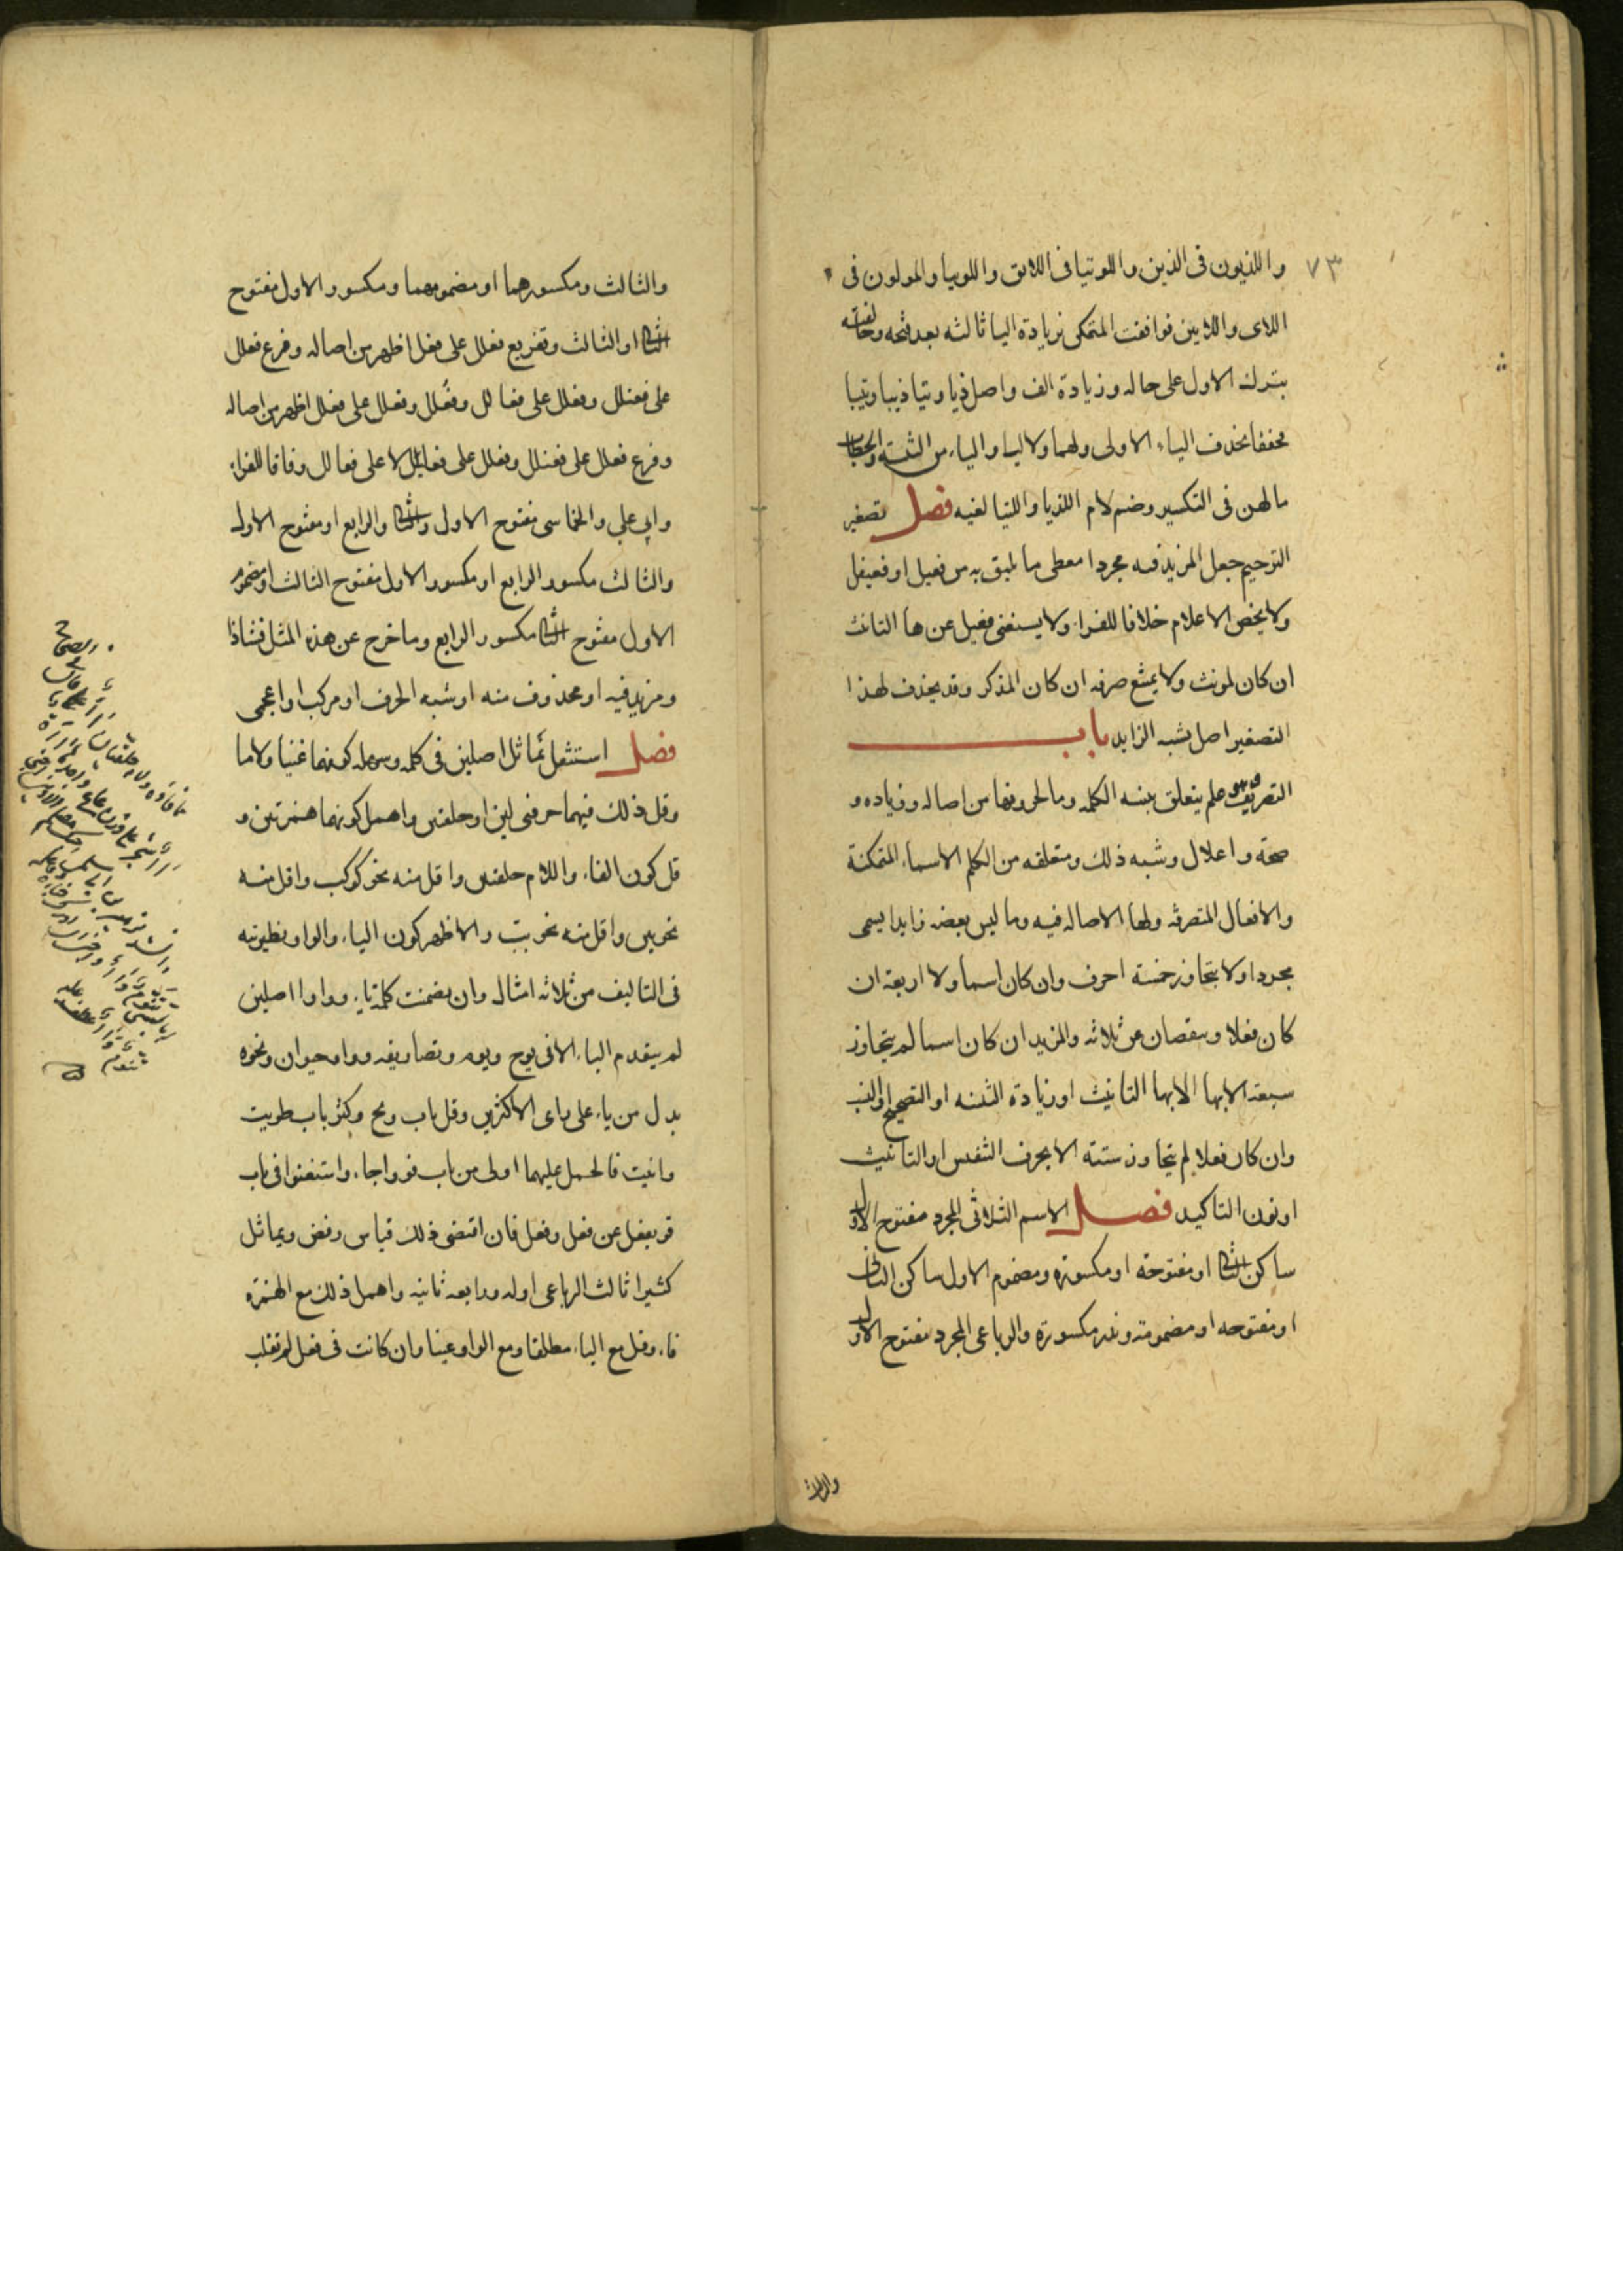 ٧٣
واللذيون فى الذين واللوتيا فى اللاتى واللويبا والمولون فى
اللاى واللايين فوافقت المتمكن بزيادة اليا ثالثه بعد فتحه وخالفته
بترك الاول على حاله وزيادة الف واصل ذيا وتيا ذييا وتييا
مخففا بحذف الياء الاولى ولهما ولاليا والياء من التثنيه والحطاب
مالهن فى التكسير وضم لام اللذيا واللتيا لغيه فصل تصغير
الترخيم جعل المزيد فيه مجردا معطى ما يليق به من فعيل او فعيعل
ولا يخص الاعلام خلافا للفراء ولا يستغنى فعيل عن هاء التانث
ان كان لمونث ولا يمنع صرفه ان كان المذكر وقد يحذف لهذا
التصغير اصل يشبه الزايد باب
التصريف علم يتعلق ببنيه الكلمه وما لحروفها من اصاله وزياده و
صحة واعلال وشبه ذلك ومتعلقه من الكلم الاسماء المتمكنة
والافعال المتصرفه ولها الاصاله فيه وما ليس بعضه زايدا يسمى
مجردا ولا يتجاوز خمسة احرف وان كان اسما ولا اربعة ان
كان فعلا وينقصان عن ثلاثه والمزيد ان كان اسما لم يتجاوز
سبعة الا بها التانيث او زيادة التثنيه او التصحيح او النسب
وان كان فعلا لم يتجاوز ستة الا بحرف التنفيس او التانيث
او نون التاكيد فصل الاسم الثلاثى المجرد مفتوح الاول
ساكن الثانى او مفتوحه او مكسوره ومضموم الاول ساكن الثانى
او مفتوحه او مضمومة وندر مكسوره والرباعى المجرد مفتوح الاول
والثالث
والثالث ومكسورهما او مضمومهما ومكسور الاول مفتوح
الثانى او الثالث وتفريع فعلل على فعل اظهر من اصاله وفرع فعلل
على فعنلل وفعلل على فعالل وفعلل وفعلل على فعلل اظهر من اصاله
وفرع فعلل على فعنلل وفعلل على فعاليل لا على فعالل وفاقا للفراء
وابى على والخماسى مفتوح الاول والثانى والرابع او مفتوح الاول
والثالث مكسور الرابع او مكسور الاول مفتوح الثالث او مضموم
الاول مفتوح الثانى مكسور الرابع وما خرج عن هذه المثل فشاذ
ومزيد فيه او محذوف منه او شبه الحرف او مركب او اعجمى
فصل استثقل تماثل اصلين فى كلمه وسهله كونهما عينا ولاما
وقل ذلك فيهما حرفى لين او حلقين واهمل كونهما همزتين و
قل كون الفاء واللام حلقين واقل منه نحو كوكب واقل منه
نحو ببن واقل منه نحو ببب والاظهر كون الياء والواو نظيرته
فى التاليف من ثلاثه امثال وان تضمنت كلمة ياء وواوا اصلين
لم يتقدم الياء الا فى يوح ويوم وتصاريفه وواو حيوان ونحوه
بدل من ياء على راى الاكثرين وقل باب ويح وكثر باب طويت
واتيت فالحمل عليهما اولى من باب قو واجاء واستغنوا فى باب
قو بفعل عن فعل وفعل فان اقتضى ذلك قياس رفض ويماثل
كثيرا ثالث الرباعى اوله ورابعه ثانيه واهمل ذلك مع الهمزه
فاء وقل مع الياء مطلقا ومع الواو عينا وان كانت فى فعل لم تقلب